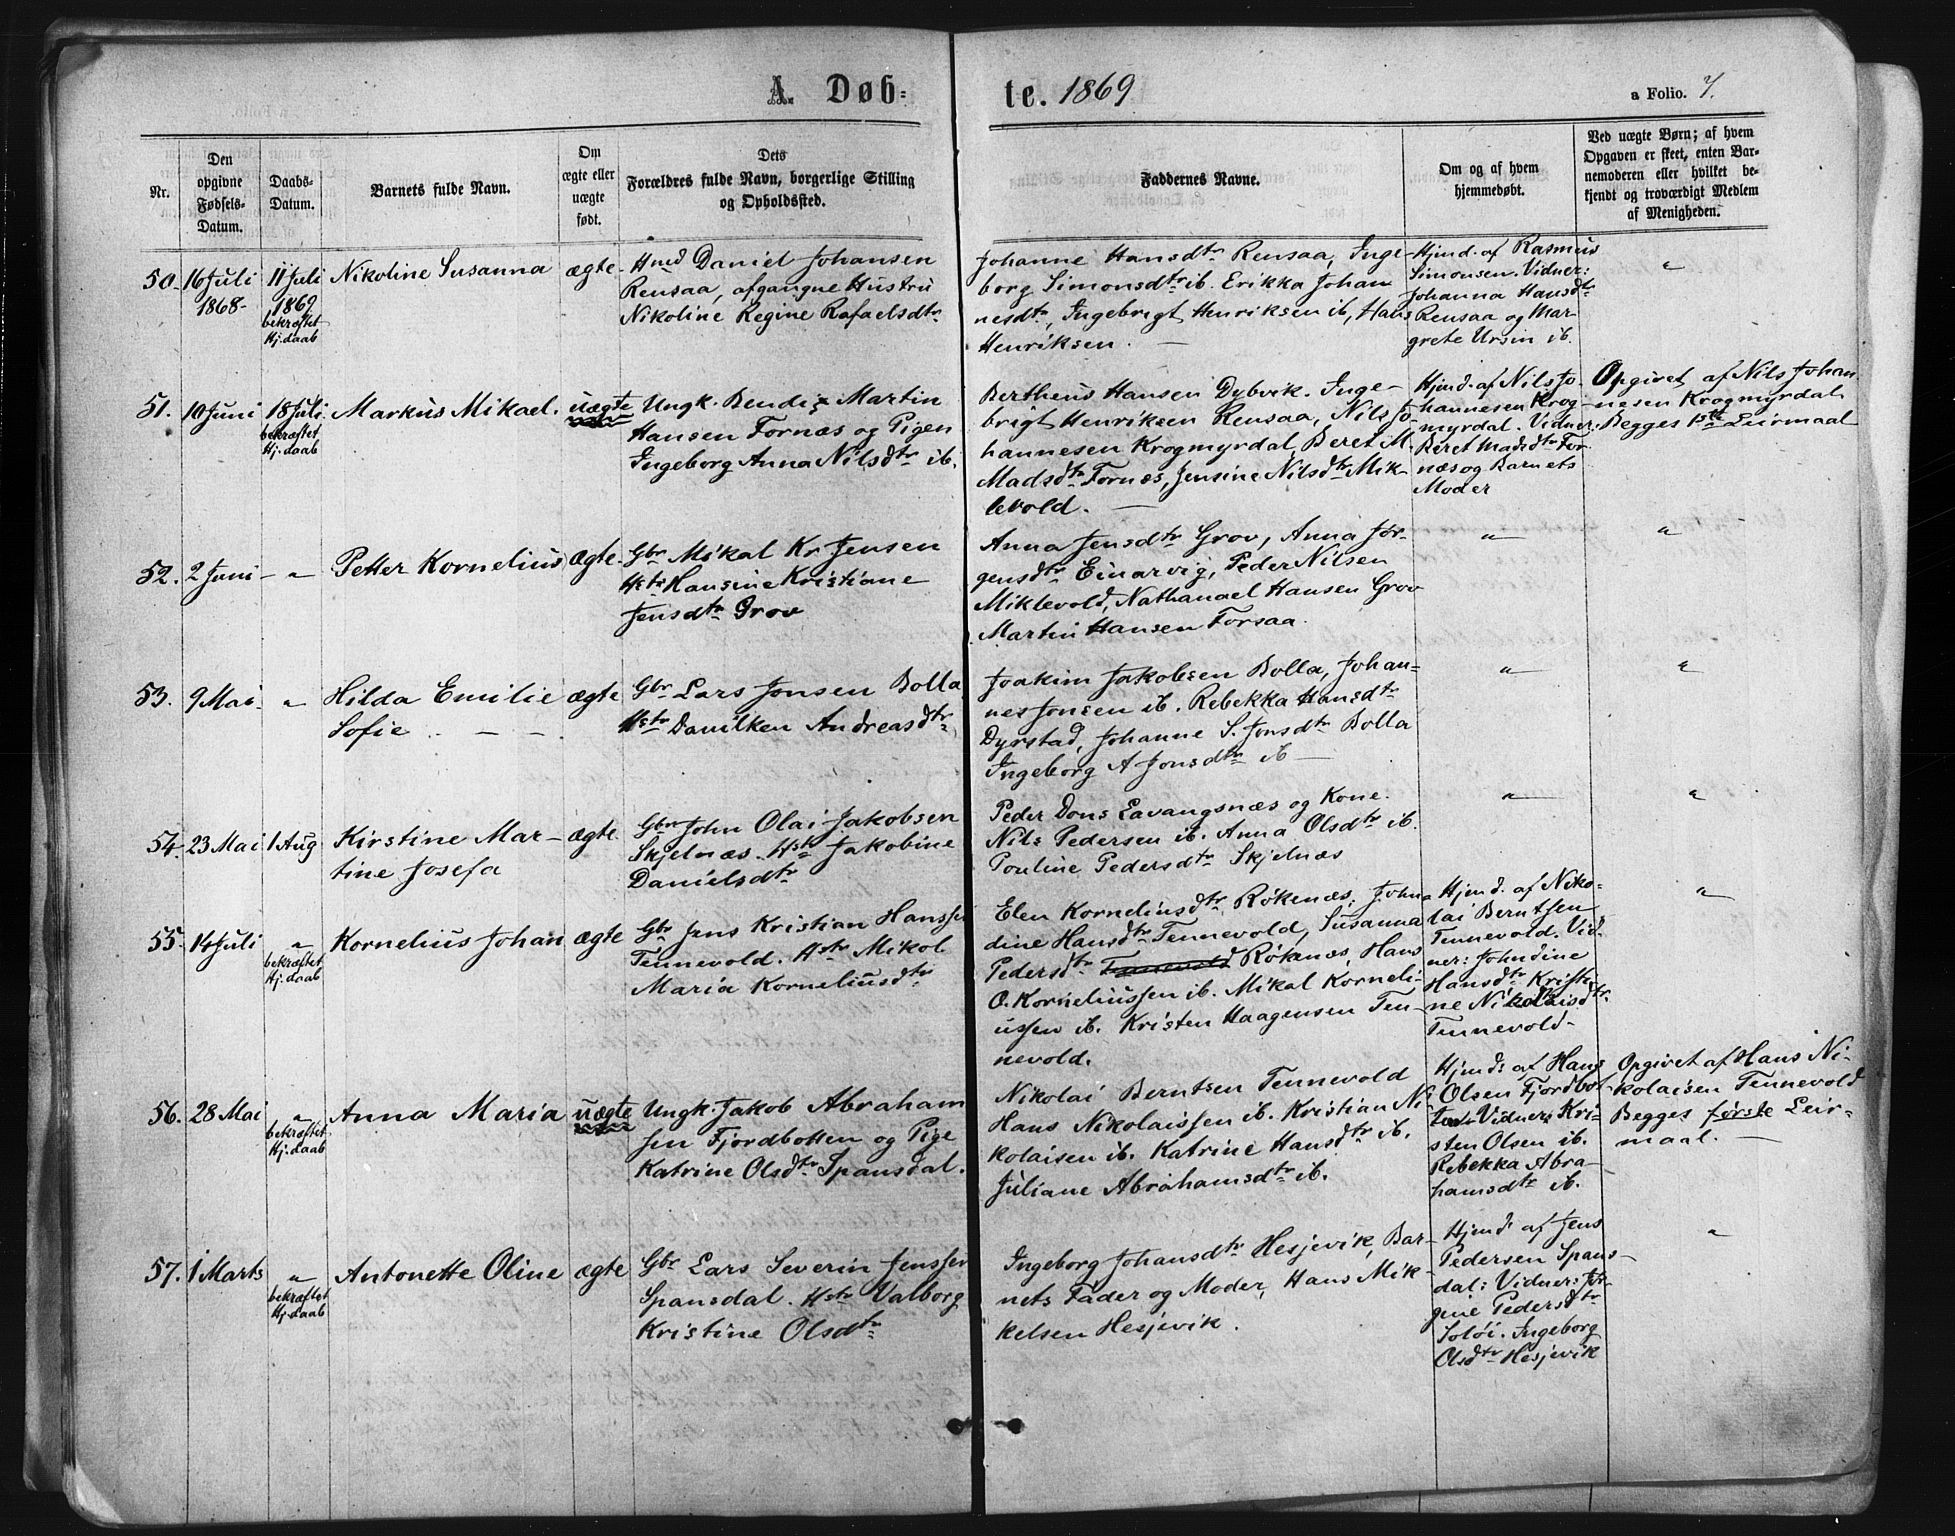 A. Døb=
te. 1869
a Folio. 7.
Nr.
Den
opgivne
Fødsels-
Datum.
Daabs-
Datum.
Barnets fulde Navn.
Om
ægte eller
uægte
født.
Dets
Forældres fulde Navn, borgerlige Stilling
og Opholdssted.
Faddernes Navne.
Om og af hvem
hjemmedøbt.
Ved uægte Børn; af hvem
Opgaven er skeet, enten Bar-
nemoderen eller hvilket be-
kjendt og troværdigt Medlem
af Menigheden.
50.
16 Juli
1868-
11 Juli
1869
bekræftet
Hj.daab
Nikoline Susanna
ægte-
Hmd Daniel Johansen
Rensaa, afgangne Hustru
Nikoline Regine Rafaelsdtr
Johanne Hansdtr Rensaa, Inge-
borg Simonsdtr ib. Erikka Johan
nesdtr, Ingebrigt Henriksen ib, Hans
Henriksen. —
Hjmd. af Rasmus
Simonsen. Vidner:
Johanna Hansdtr
Rensaa og Mar-
grete Ursin ib.
"
51.
10 Juni
18 Juli
bekræftet
Hj.daab
Markus Mikael.
uægte
Ungk. Bendix Martin
Hansen Fornæs og Pigen
Ingeborg Anna Nilsdtr ib.
Bertheus Hansen Dybvik. Inge-
brigt Henriksen Rensaa, Nils Jo-
hannesen Krogmyrdal, Beret M.
Madsdtr Fornæs, Jensine Nilsdtr Mik-
levold. —
Hjmd. af Nils Jo-
hannesen Krog-
myrdal. Vidner:
Beret Madsdtr For-
næs og Barnets
Moder
Opgivet af Nils Johan-
nesen Krogmyrdal
Begges 1ste Leirmaal
52.
2 Juni -
"
Petter Kornelius
ægte.
Gbr Mikal Kr Jensen
Hstr Hansine Kristiane
Jensdtr Grov
Anna Jensdtr Grov, Anna Jør-
gensdtr Einarvig, Peder Nilsen
Miklevold, Nathanael Hansen Grov
Martin Hansen Forsaa.
"
"
53.
9 Mai -
"
Hilda Emilie
Sofie .. — —
ægte
Gbr Lars Jonsen Bolla
Hstr Danilken Andreasdtr
Joakim Jakobsen Bolla, Johan-
nes Jonsen ib. Rebekka Hansdtr
Dyrstad, Johanne S. Jonsdtr Bolla
Ingeborg A Jonsdtr ib —
"
"
54.
23 Mai
1 Aug
Kirstine Mar-
tine Josefa
ægte.
Gbr John Olai Jakobsen
Skjelnæs. Hstr Jakobine
Danielsdtr
Peder Dons Lavangsnæs og Kone.
Nils Pedersen ib. Anna Olsdtr ib.
Pouline Pedersdtr Skjelnæs
"
"
55.
14 Juli
"
bekræftet
Hj.daab
Kornelius Johan
ægte
Gbr Jens Kristian Hanssen
Tennevold. Hstr Mikol
Maria Korneliusdtr
Elen Korneliusdtr Røkenæs, John-
dine Hansdtr Tennevold, Susanna
Pedersdtr Tennevold Røknæs, Hans
O. Korneliussen ib. Mikal Korneli-
ussen ib. Kristen Haagensen Ten-
nevold.
Hjemd. af Niko-
lai Berntsen
Tennevold. Vid-
ner: Johndine
Hansdtr Kristi-
ne Nikolaisdtr
Tennevold-
"
56.
28 Mai
"
bekræftet
Hj.daab
Anna Maria
uægte
Ungk. Jakob Abraham
sen Fjordbotten og Pige
Katrine Olsdtr Spansdal.
Nikolai Berntsen Tennevold
Hans Nikolaissen ib. Kristian Ni
kolaisen ib. Katrine Hansdtr ib.
Juliane Abrahamsdtr ib.
Hjmd: af Hans
Olsen Fjordbot-
ten. Vidner: Kri-
sten Olsen ib.
Rebekka Abra-
hamsdtr ib.
Opgivet af Hans Ni-
kolaisen Tennevold
Begges første Leir-
maal. —
57.
1 Marts
"
bekræftet
Hj.daab
Antonette Oline
ægte
Gbr Lars Severin Jenssen
Spansdal. Hstr Valborg
Kristine Olsdtr
Ingeborg Johansdtr Hesjevik, Bar-
nets Fader og Moder, Hans Mik-
kelsen Hesjevik.
Hjmd. af Jens
Pedersen Spans-
dal: Vidner: Jør-
gine Pedersdtr
Soløi. Ingeborg
Olsdtr Hesjevik
"